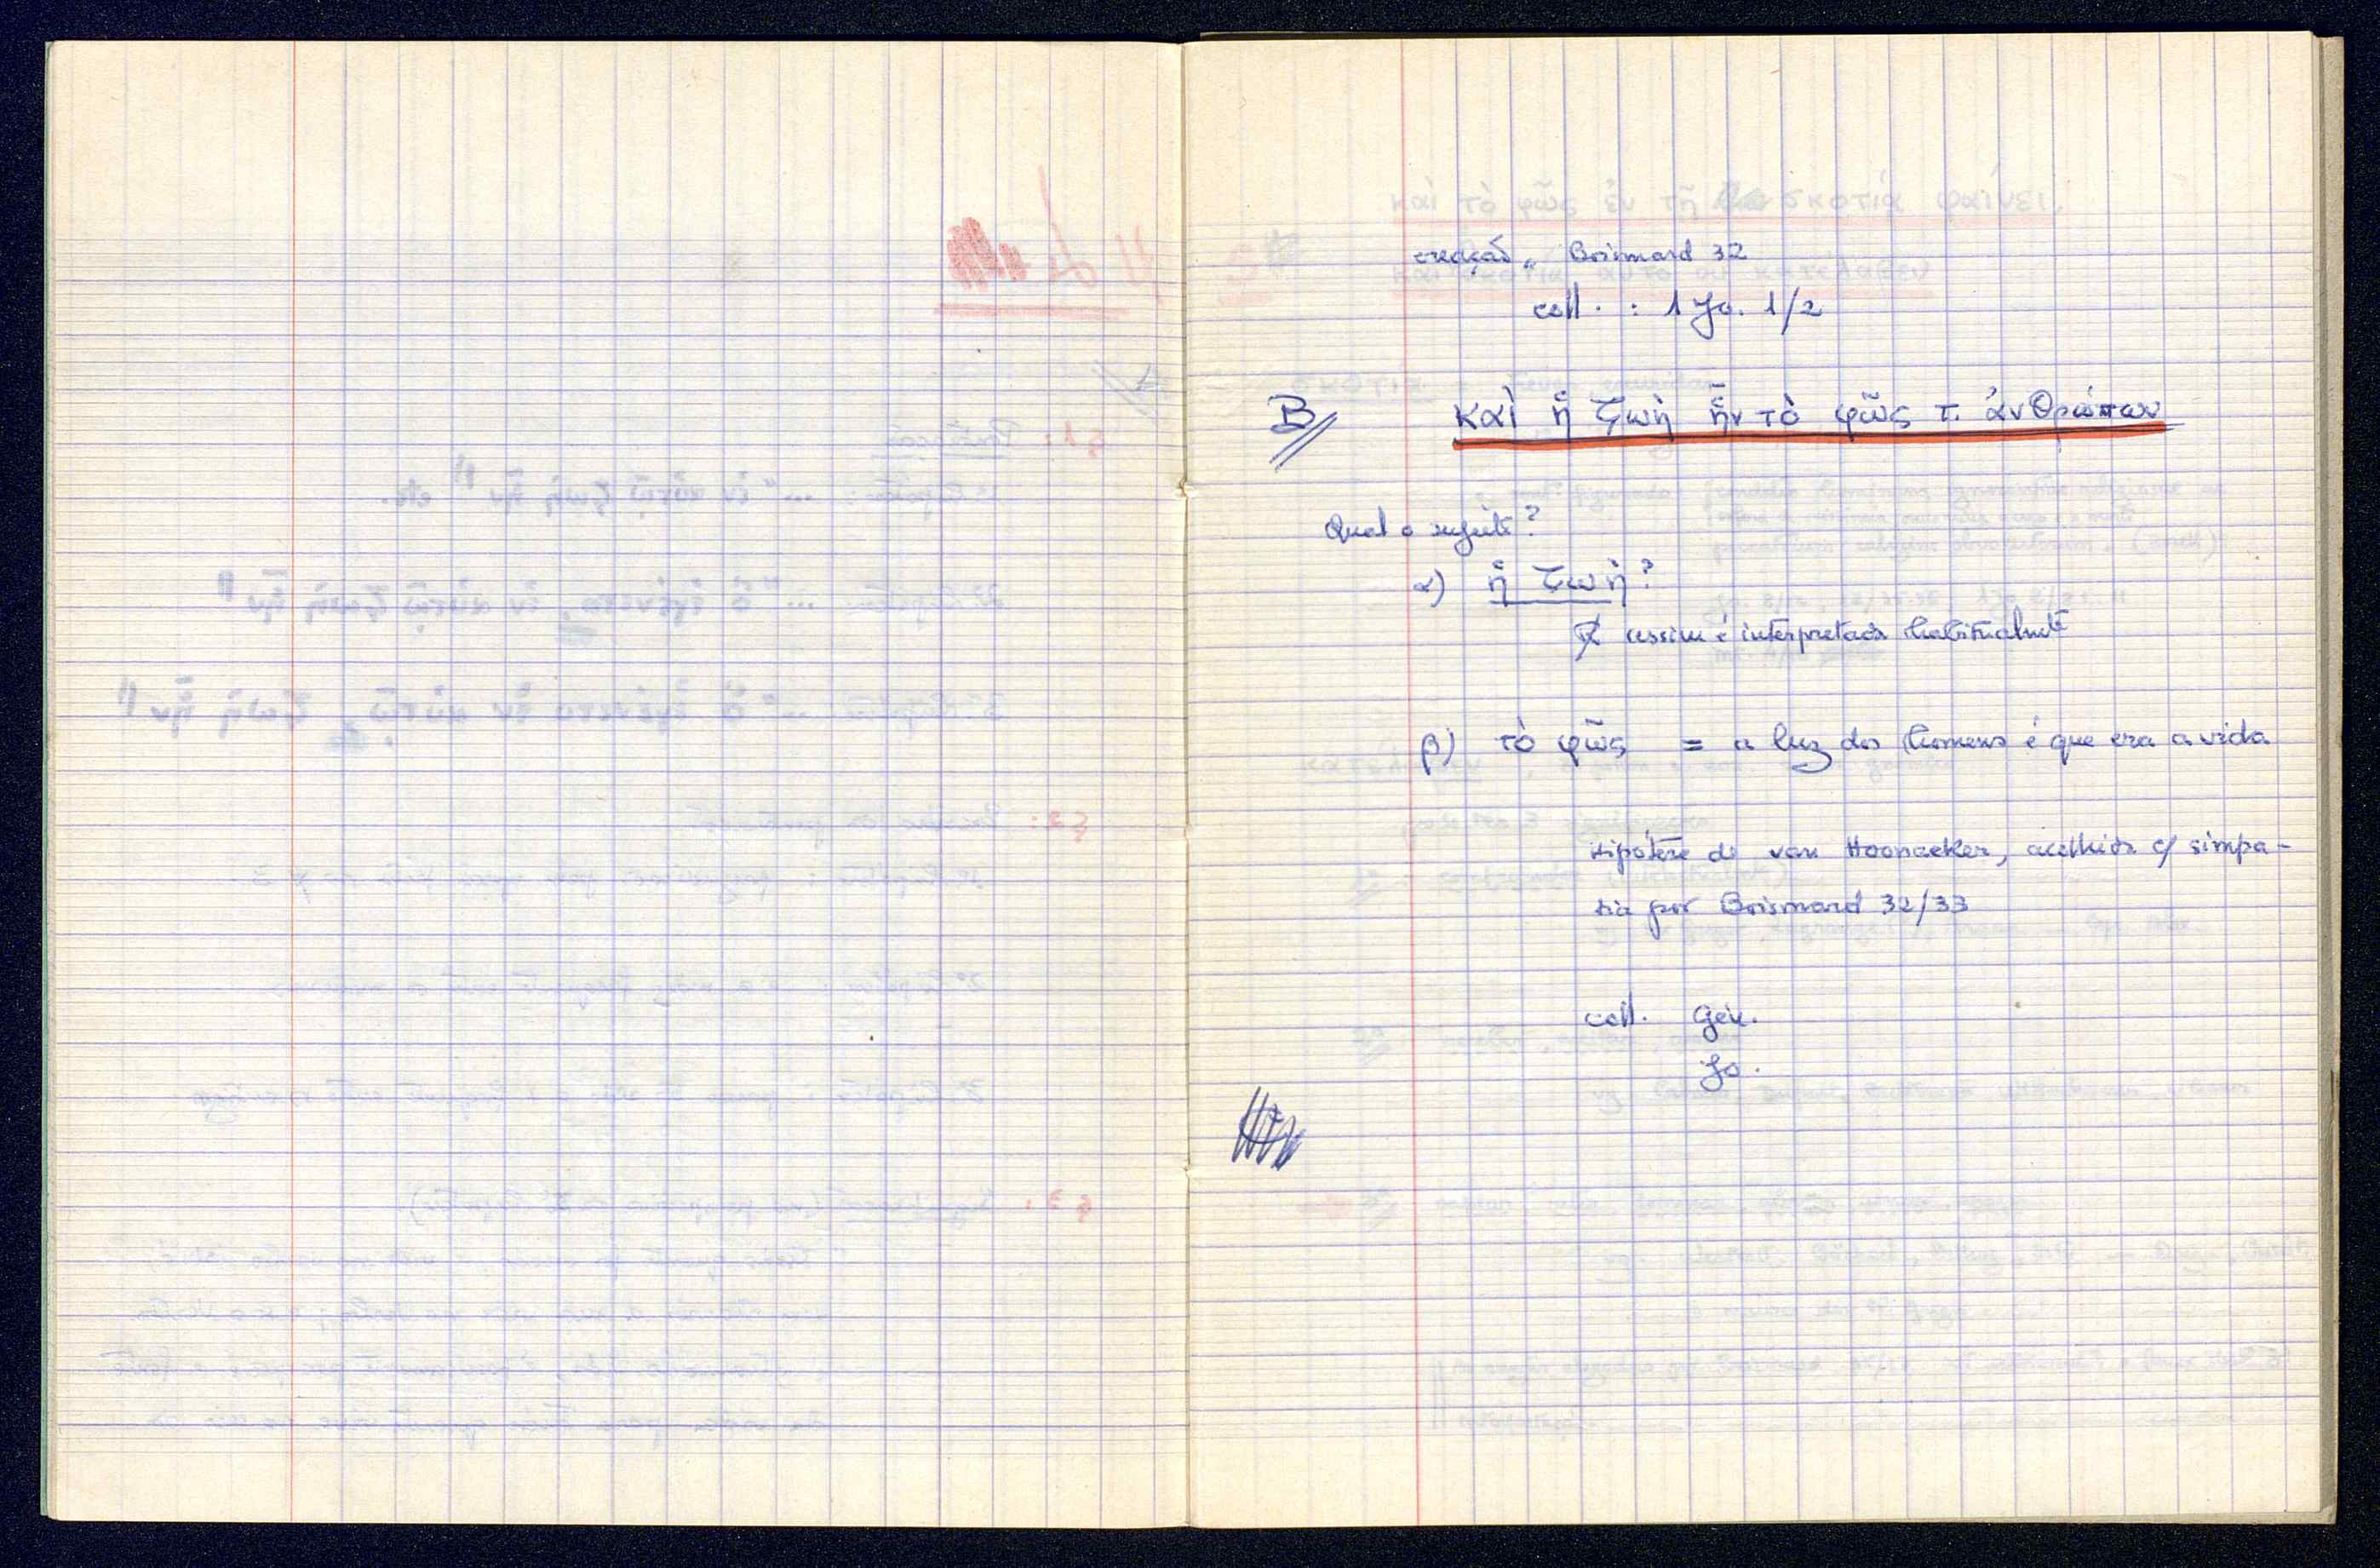 creação" Boismard 32
coll. : 1 Jo. 1/2
B// καὶ ἡ ζωὴ ἦν τὸ φῶς τ. ἀνθρώπων
Qual o sujeito?
α) ἡ ζωὴ?
assim é interpretada habitualmte
β) τὸ φῶς = a luz dos homens é que era a vida
Hipótese de van Hoonacker, acolhida c/ simpa-
tia por Boismard 32/33
coll. Gén.
Jo.